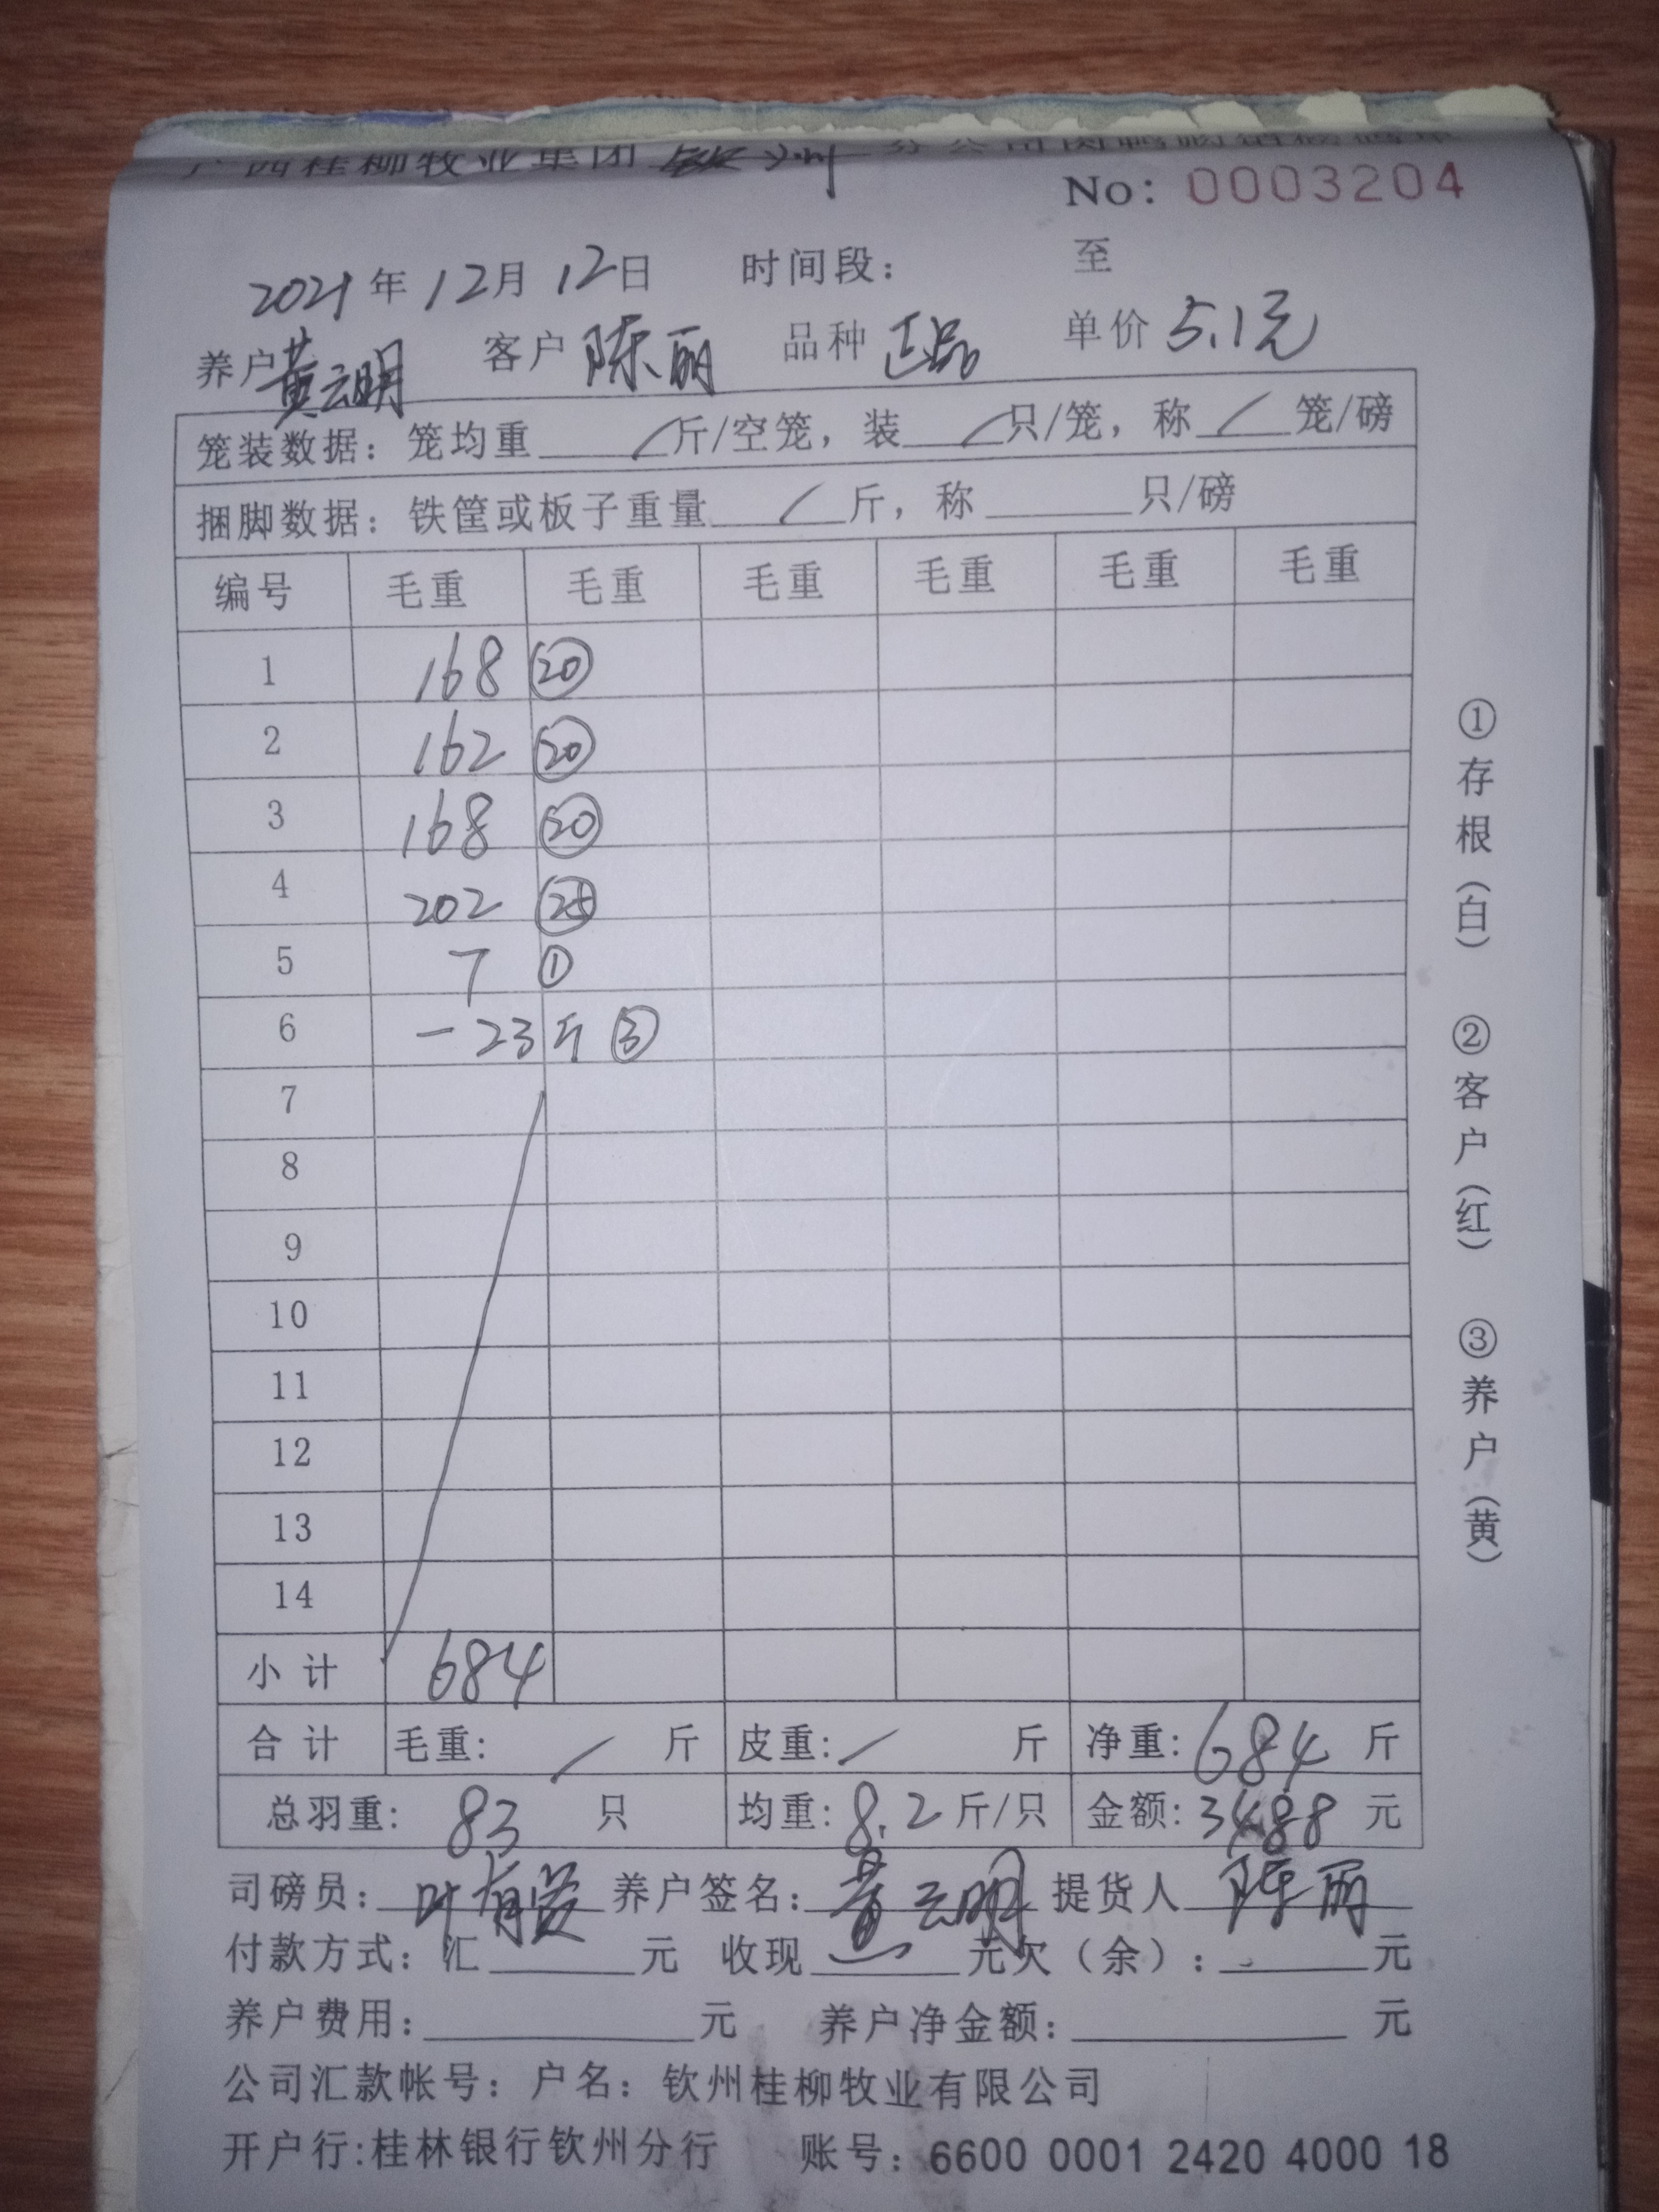 广西桂柳牧业集团 钦州 分公司肉鸭购销磅码单
No: 0003204
2021年12月12日 时间段: 至
养户 黄云明 客户 陈丽 品种 正品 单价 5.1元
笼装数据: 笼均重 / 斤/空笼, 装 / 只/笼, 称 / 笼/磅
捆脚数据: 铁筐或板子重量 / 斤, 称 只/磅
编号 毛重 毛重 毛重 毛重 毛重 毛重
1 168 ⑳
2 162 ⑳
3 168 ⑳
4 202 ㉕
5 7 ①
6 -23斤 ③
7
8
9
10
11
12
13
14
小计 684
合计 毛重: / 斤 皮重: / 斤 净重: 684 斤
总羽重: 83 只 均重: 8.2 斤/只 金额: 3488 元
司磅员: 叶有 养户签名: 黄云明 提货人 陈丽
付款方式: 汇 元 收现 元 欠(余): 元
养户费用: 元 养户净金额: 元
公司汇款帐号: 户名: 钦州桂柳牧业有限公司
开户行:桂林银行钦州分行 账号: 6600 0001 2420 4000 18
①存根(白) ②客户(红) ③养户(黄)